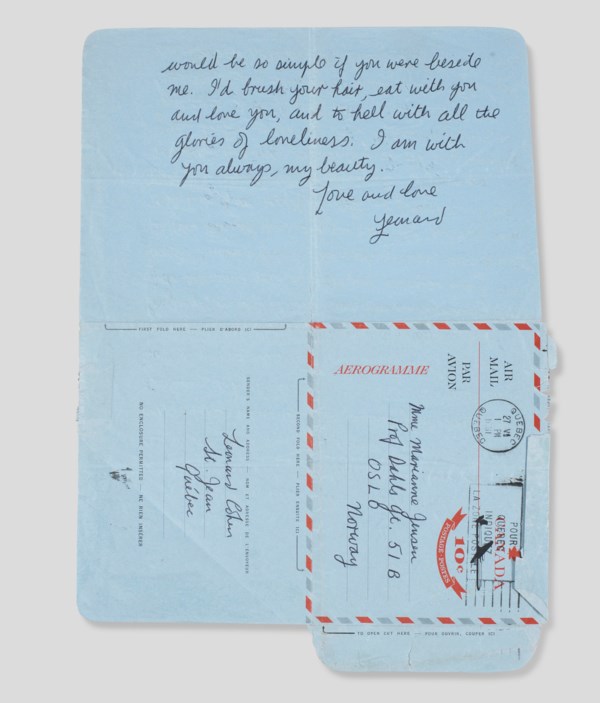 would be so simple if you were beside
me. I'd brush your hair, eat with you
and love you, and to hell with all the
glories of loneliness. I am with
you always, my beauty.
Love and love
Leonard
FIRST FOLD HERE — PLIER D'ABORD ICI
AEROGRAMME
AIR
MAIL
PAR
AVION
QUEBEC
27 VI
1 PM
QUEBEC
Mme Marianne Jensen
Prof Dahls Gt. 51B
OSLO
Norway
POUR
QUEBEC
INDIQUEZ
LA ZONE POSTALE
CANADA
10c
POSTAGE POSTES
SECOND FOLD HERE — PLIER ENSUITE ICI
SENDER'S NAME AND ADDRESS — NOM ET ADRESSE DE L'ENVOYEUR
Leonard Cohen
St. Jean
Québec
NO ENCLOSURE PERMITTED — NE RIEN INSÉRER
TO OPEN CUT HERE — POUR OUVRIR, COUPER ICI